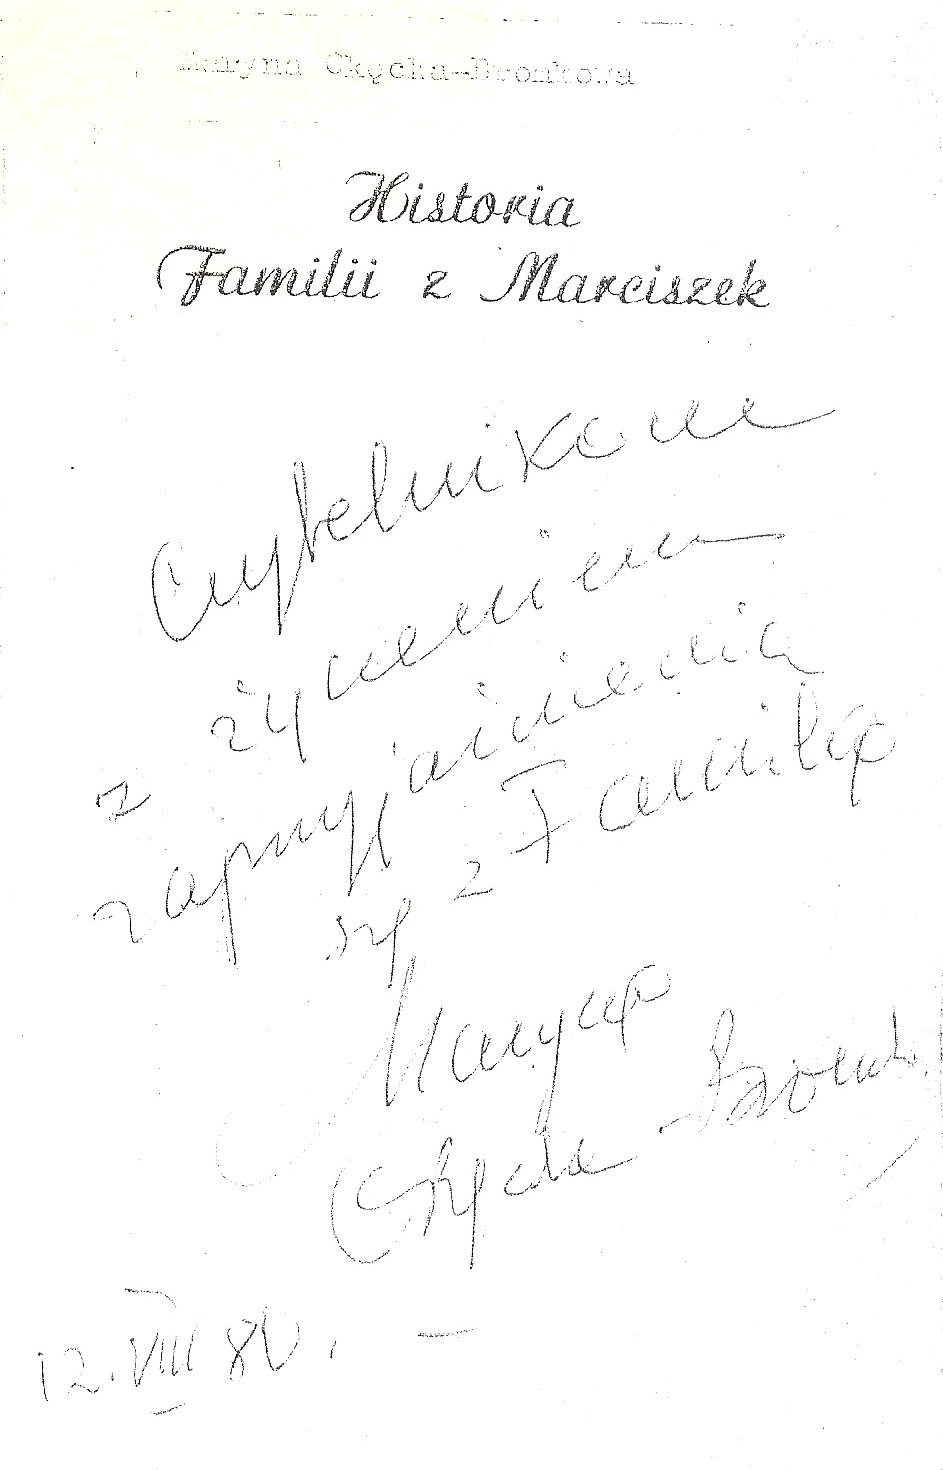 Maryna Okęcka-Bromkowa
Historia
Familii z Marciszek
Czytelnikom
z życzeniem
zaprzyjaźnienia
się z Familią
Maryna
Okęcka-Bromk.
12.VIII 80. –